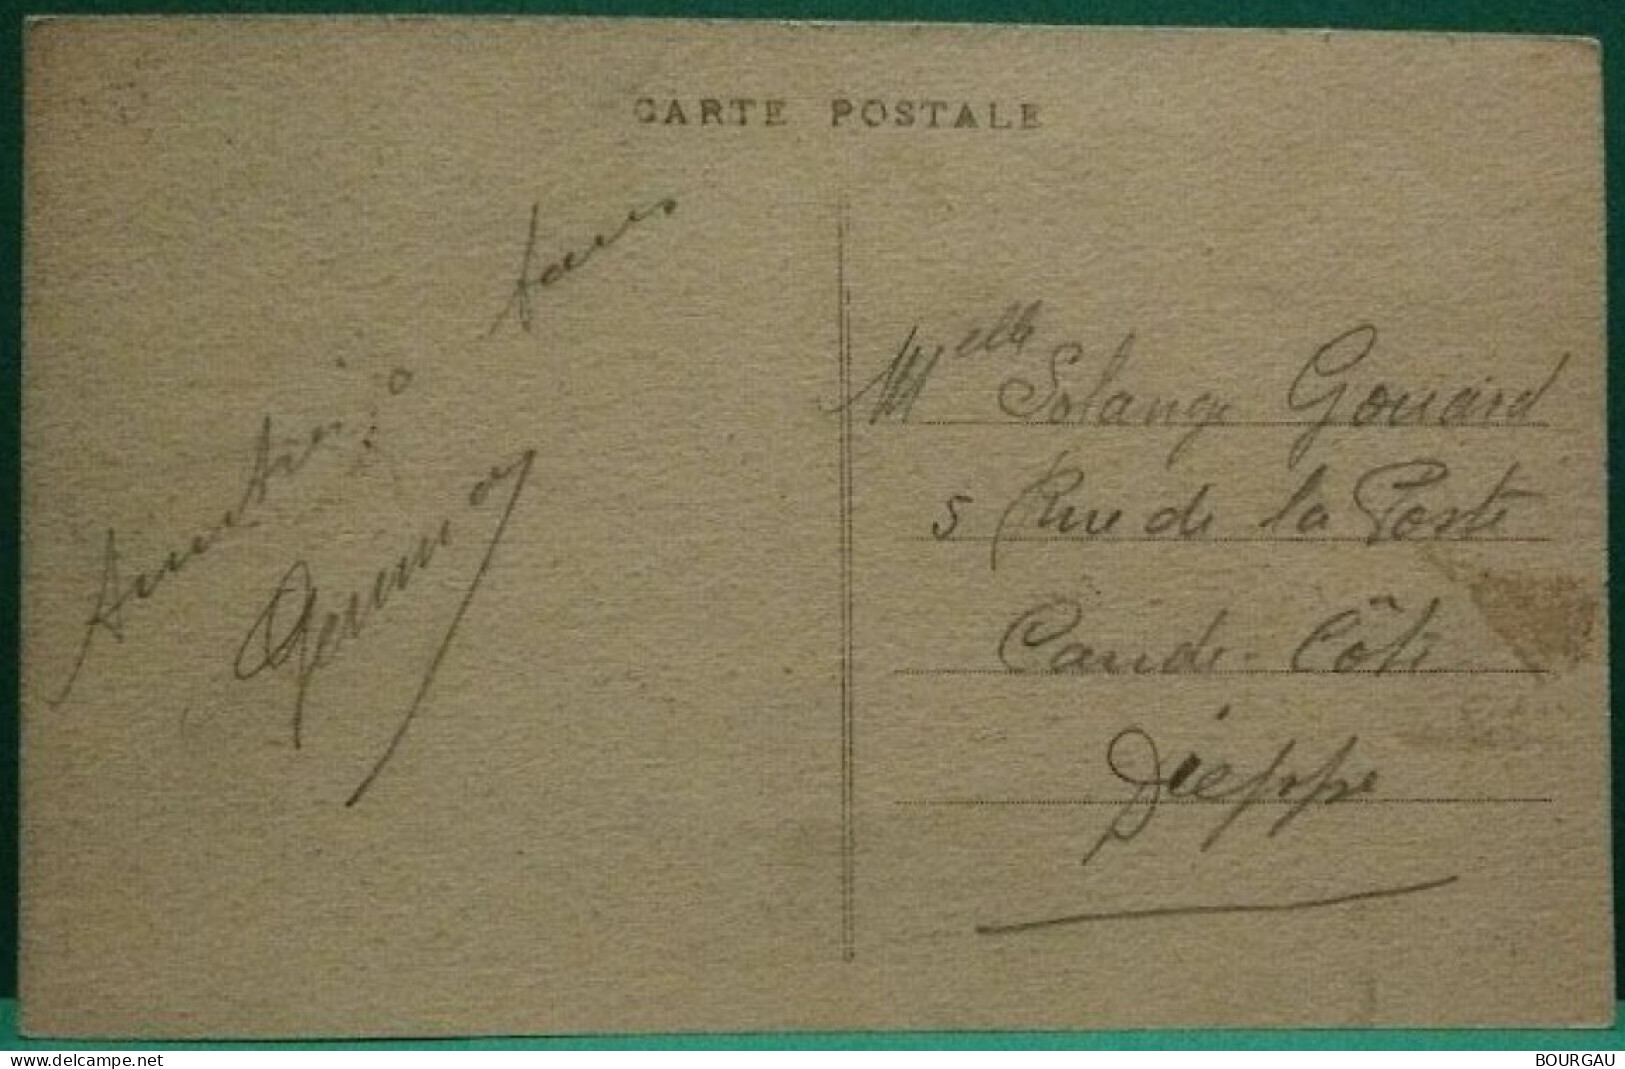 CARTE POSTALE
Melle Solange Gouard
5 Rue de la Poste
Caude-Côte
Dieppe
www.delcampe.net
BOURGAU